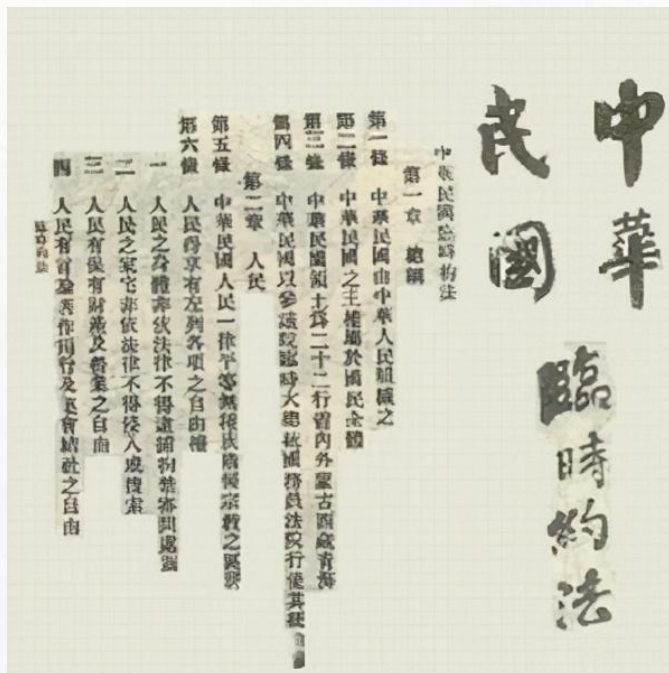 中華
民國
臨時約法
中華民國臨時約法
第一章 總綱
第一條 中華民國由中華人民組織之
第二條 中華民國之主權屬於國民全體
第三條 中華民國領土為二十二行省內外蒙古西藏青海
第四條 中華民國以參議院臨時大總統國務員法院行使其統
第二章 人民
第五條 中華民國人民一律平等無種族階級宗教之區別
第六條 人民得享有左列各項之自由權
一 人民之身體非依法律不得逮捕拘禁審問處罰
二 人民之家宅非依法律不得侵入或搜索
三 人民有保有財產及營業之自由
四 人民有言論著作刊行及集會結社之自由